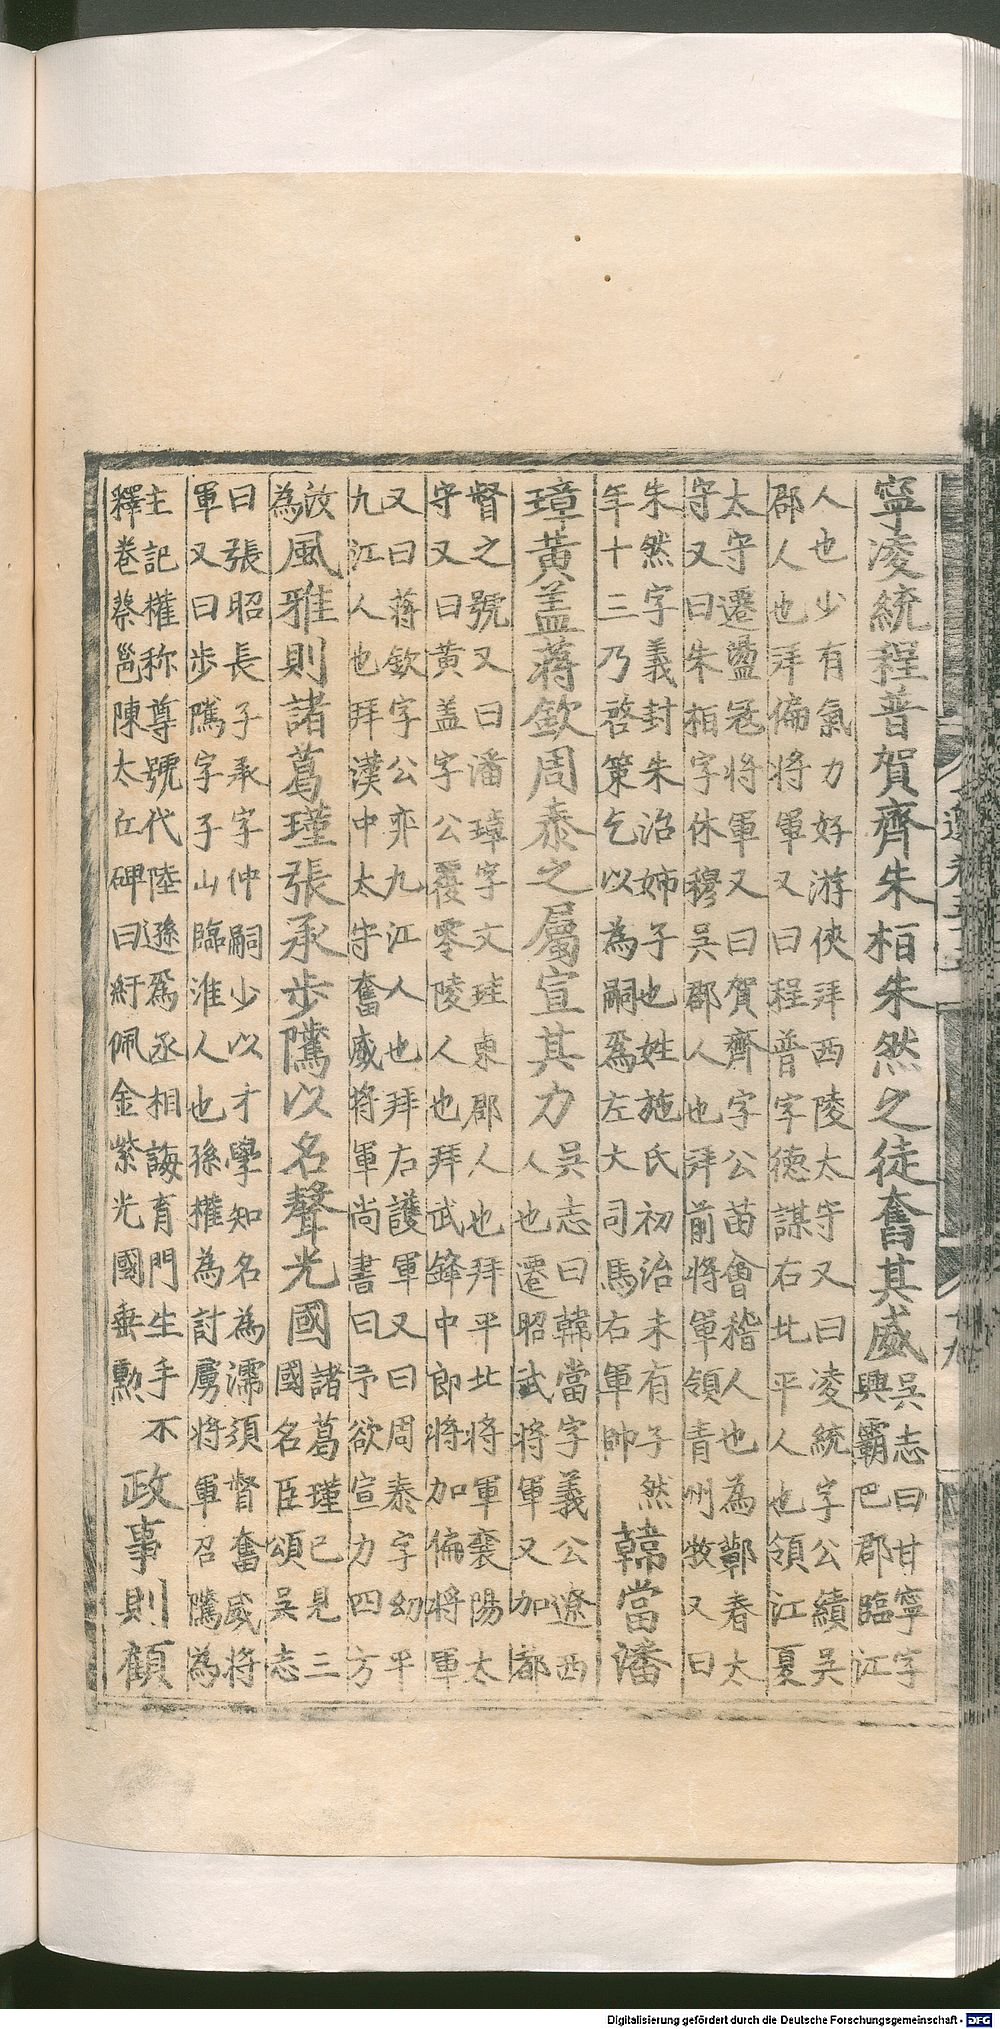 寧凌統程普賀齊朱栢朱然之徒奮其威
吳志曰甘寧字
興霸巴郡臨江
人也少有氣力好游俠拜西陵太守又曰凌統字公績吳
郡人也拜偏將軍又曰程普字德謀右北平人也領江夏
太守遷盪冦將軍又曰賀齊字公苗會稽人也為鄿春太
守又曰朱栢字休穆吳郡人也拜前將軍領青州牧又曰
朱然字義封朱治姉子也姓施氏初治未有子然
年十三乃啓策乞以為嗣爲左大司馬右軍帥
韓當潘
璋黃盖蒋欽周泰之屬宣其力
吳志曰韓當字義公遼西
人也遷昭武將軍又加都
督之號又曰潘璋字文珪東郡人也拜平北將軍襄陽太
守又曰黃盖字公覆零陵人也拜武鋒中郎將加偏將軍
又曰蒋欽字公弈九江人也拜右護軍又曰周泰字幼平
九江人也拜漢中太守奮威將軍尚書曰予欲宣力四方
汝
為
風雅則諸葛瑾張承步騭以名聲光國
諸葛瑾已見三
國名臣頌吳志
曰張昭長子承字仲嗣少以才學知名為濡須督奮威將
軍又曰步騭字子山臨淮人也孫權為討虜將軍召騭為
主記權称尊號代陸遜爲丞相誨育門生手不
釋卷蔡邕陳太丘碑曰紆佩金紫光國垂勲
政事則顧
Digitalisierung gefördert durch die Deutsche Forschungsgemeinschaft - DFG